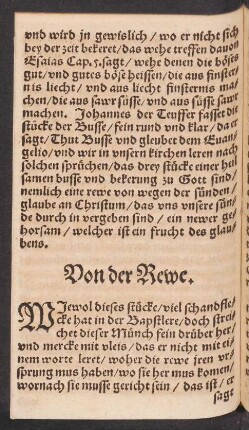 vnd wird jn gewislich / wo er nicht sich
bey der zeit bekeret / das wehe treffen dauon
Esaias Cap. 5. sagt / wehe denen die böses
gut / vnd gutes böse heissen / die aus finster
nis liecht / vnd aus liecht finsternis ma/
chen / die aus sawr süsse / vnd aus süsse sawr
machen. Johannes der Teuffer fasset die
stücke der Busse / fein rund vnd klar / da er
sagt / Thut Busse vnd gleubet dem Euan/
gelio / vnd wir in vnsern kirchen leren nach
solchen sprüchen / das drey stücke einer heil
samen busse vnd bekerung zu Gott sind /
nemlich eine rewe von wegen der sünden /
glaube an Christum / das vns vnsere sün/
de durch in vergeben sind / ein newer ge/
horsam / welcher ist ein frucht des glau/
bens.
Von der Rewe.
WJewol dieses stücke / viel schandfle/
cke hat in der Bapstlere / doch strei/
chet dieser Münch fein drüber her /
vnd mercke mit vleis / das er nicht mit ei/
nem worte leret / woher die rewe jren vr/
sprung mus haben / wo sie her mus komen /
wornach sie musse gericht sein / das ist / er
sagt